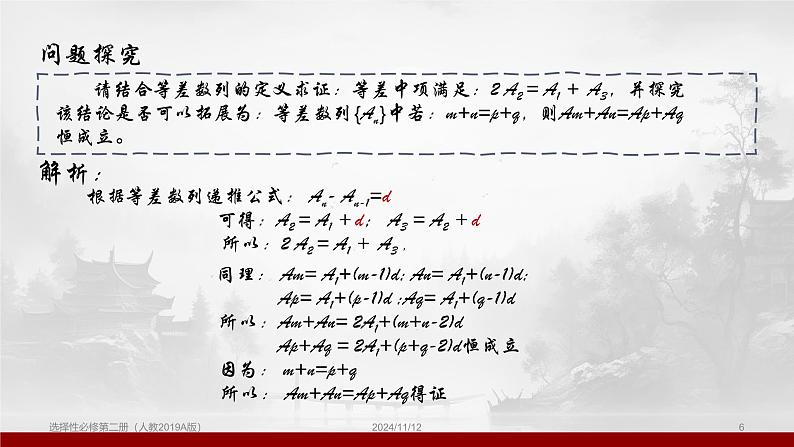 问题探究
请结合等差数列的定义求证：等差中项满足：2A₂=A₁+A₃，并探究
该结论是否可以拓展为：等差数列{Aₙ}中若：m+n=p+q，则Am+An=Ap+Aq
恒成立。
解析：
根据等差数列递推公式：Aₙ-Aₙ₋₁=d
可得：A₂=A₁+d；A₃=A₂+d
所以：2A₂=A₁+A₃．
同理：Am=A₁+(m-1)d; An=A₁+(n-1)d;
Ap=A₁+(p-1)d ;Aq=A₁+(q-1)d
所以：Am+An=2A₁+(m+n-2)d
Ap+Aq=2A₁+(p+q-2)d恒成立
因为：m+n=p+q
所以：Am+An=Ap+Aq得证
选择性必修第二册（人教2019A版） 2024/11/12 6